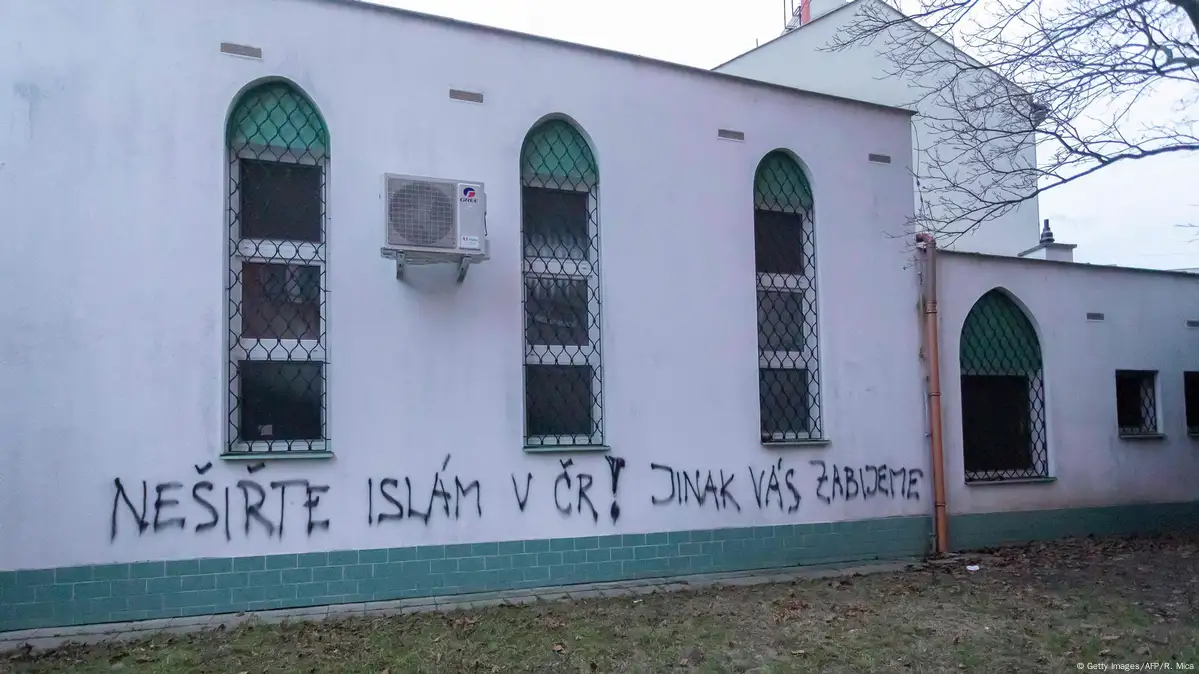 GREE
NEŠIŘTE ISLÁM V ČR! JINAK VÁS ZABIJEME
© Getty Images/AFP/R. Mica